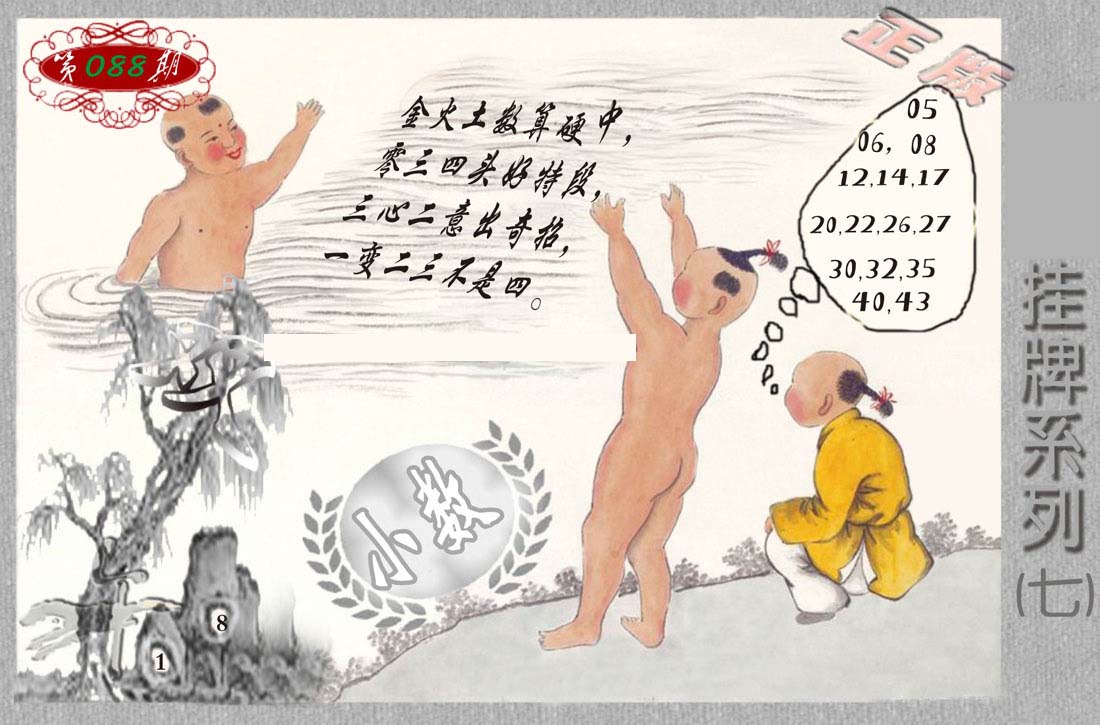 第088期
正版
金火土数算硬中，
零三四头好特段，
三心二意出奇招，
一变二三不是四。
05
06, 08
12,14,17
20,22,26,27
30,32,35
40,43
挂牌系列(七)
小数
8
1